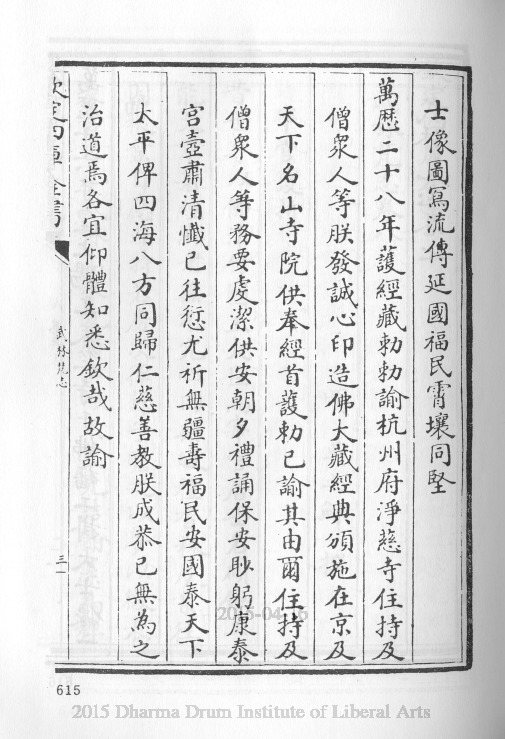 士像圖寫流傳延國福民霄壤同堅
萬歷二十八年護經藏勅勅諭杭州府淨慈寺住持及
僧衆人等朕發誠心印造佛大藏經典頒施在京及
天下名山寺院供奉經首護勅已諭其由爾住持及
僧衆人等務要虔潔供安朝夕禮誦保安眇躬康泰
宮壼肅清懺已往愆尤祈無疆壽福民安國泰天下
太平俾四海八方同歸仁慈善教朕成恭已無為之
治道焉各宜仰體知悉欽哉故諭
欽定四庫全書
武林梵志
三
615
2015 Dharma Drum Institute of Liberal Arts